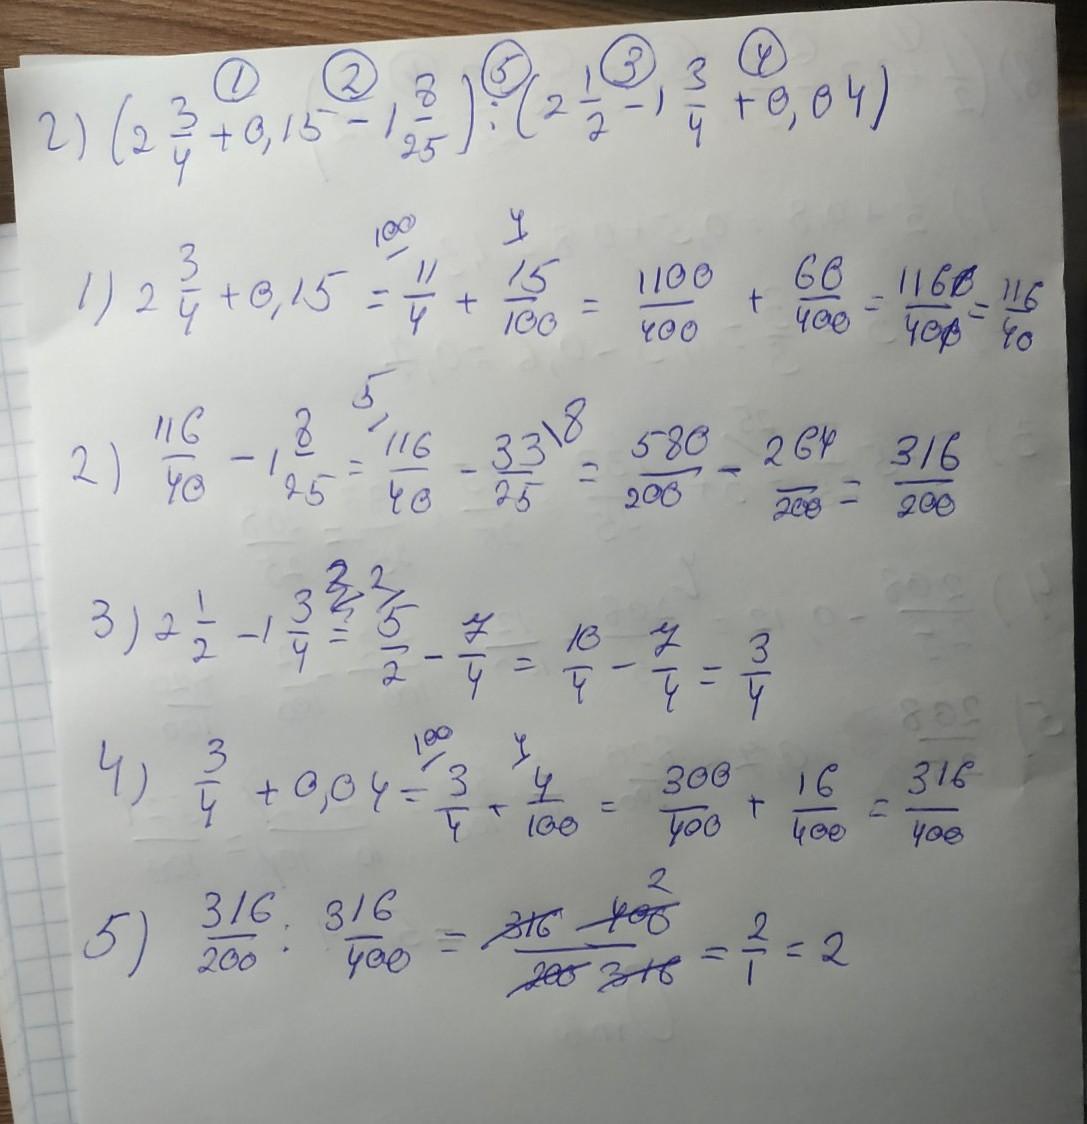 ① ② ⑤ ③ ④
2) (2 3/4 + 0,15 - 1 8/25) : (2 1/2 - 1 3/4 + 0,04)
1) 2 3/4 + 0,15 = 100/ 11/4 + 4/ 15/100 = 1100/400 + 60/400 = 1160/400 = 116/40
2) 116/40 - 1 8/25 = 5/ 116/40 - 33/25 \8 = 580/200 - 264/200 = 316/200
3) 2 1/2 - 1 3/4 = 2/ 5/2 - 7/4 = 10/4 - 7/4 = 3/4
4) 3/4 + 0,04 = 100/ 3/4 + 4/ 4/100 = 300/400 + 16/400 = 316/400
5) 316/200 : 316/400 = 316 400 2 / 200 316 = 2/1 = 2